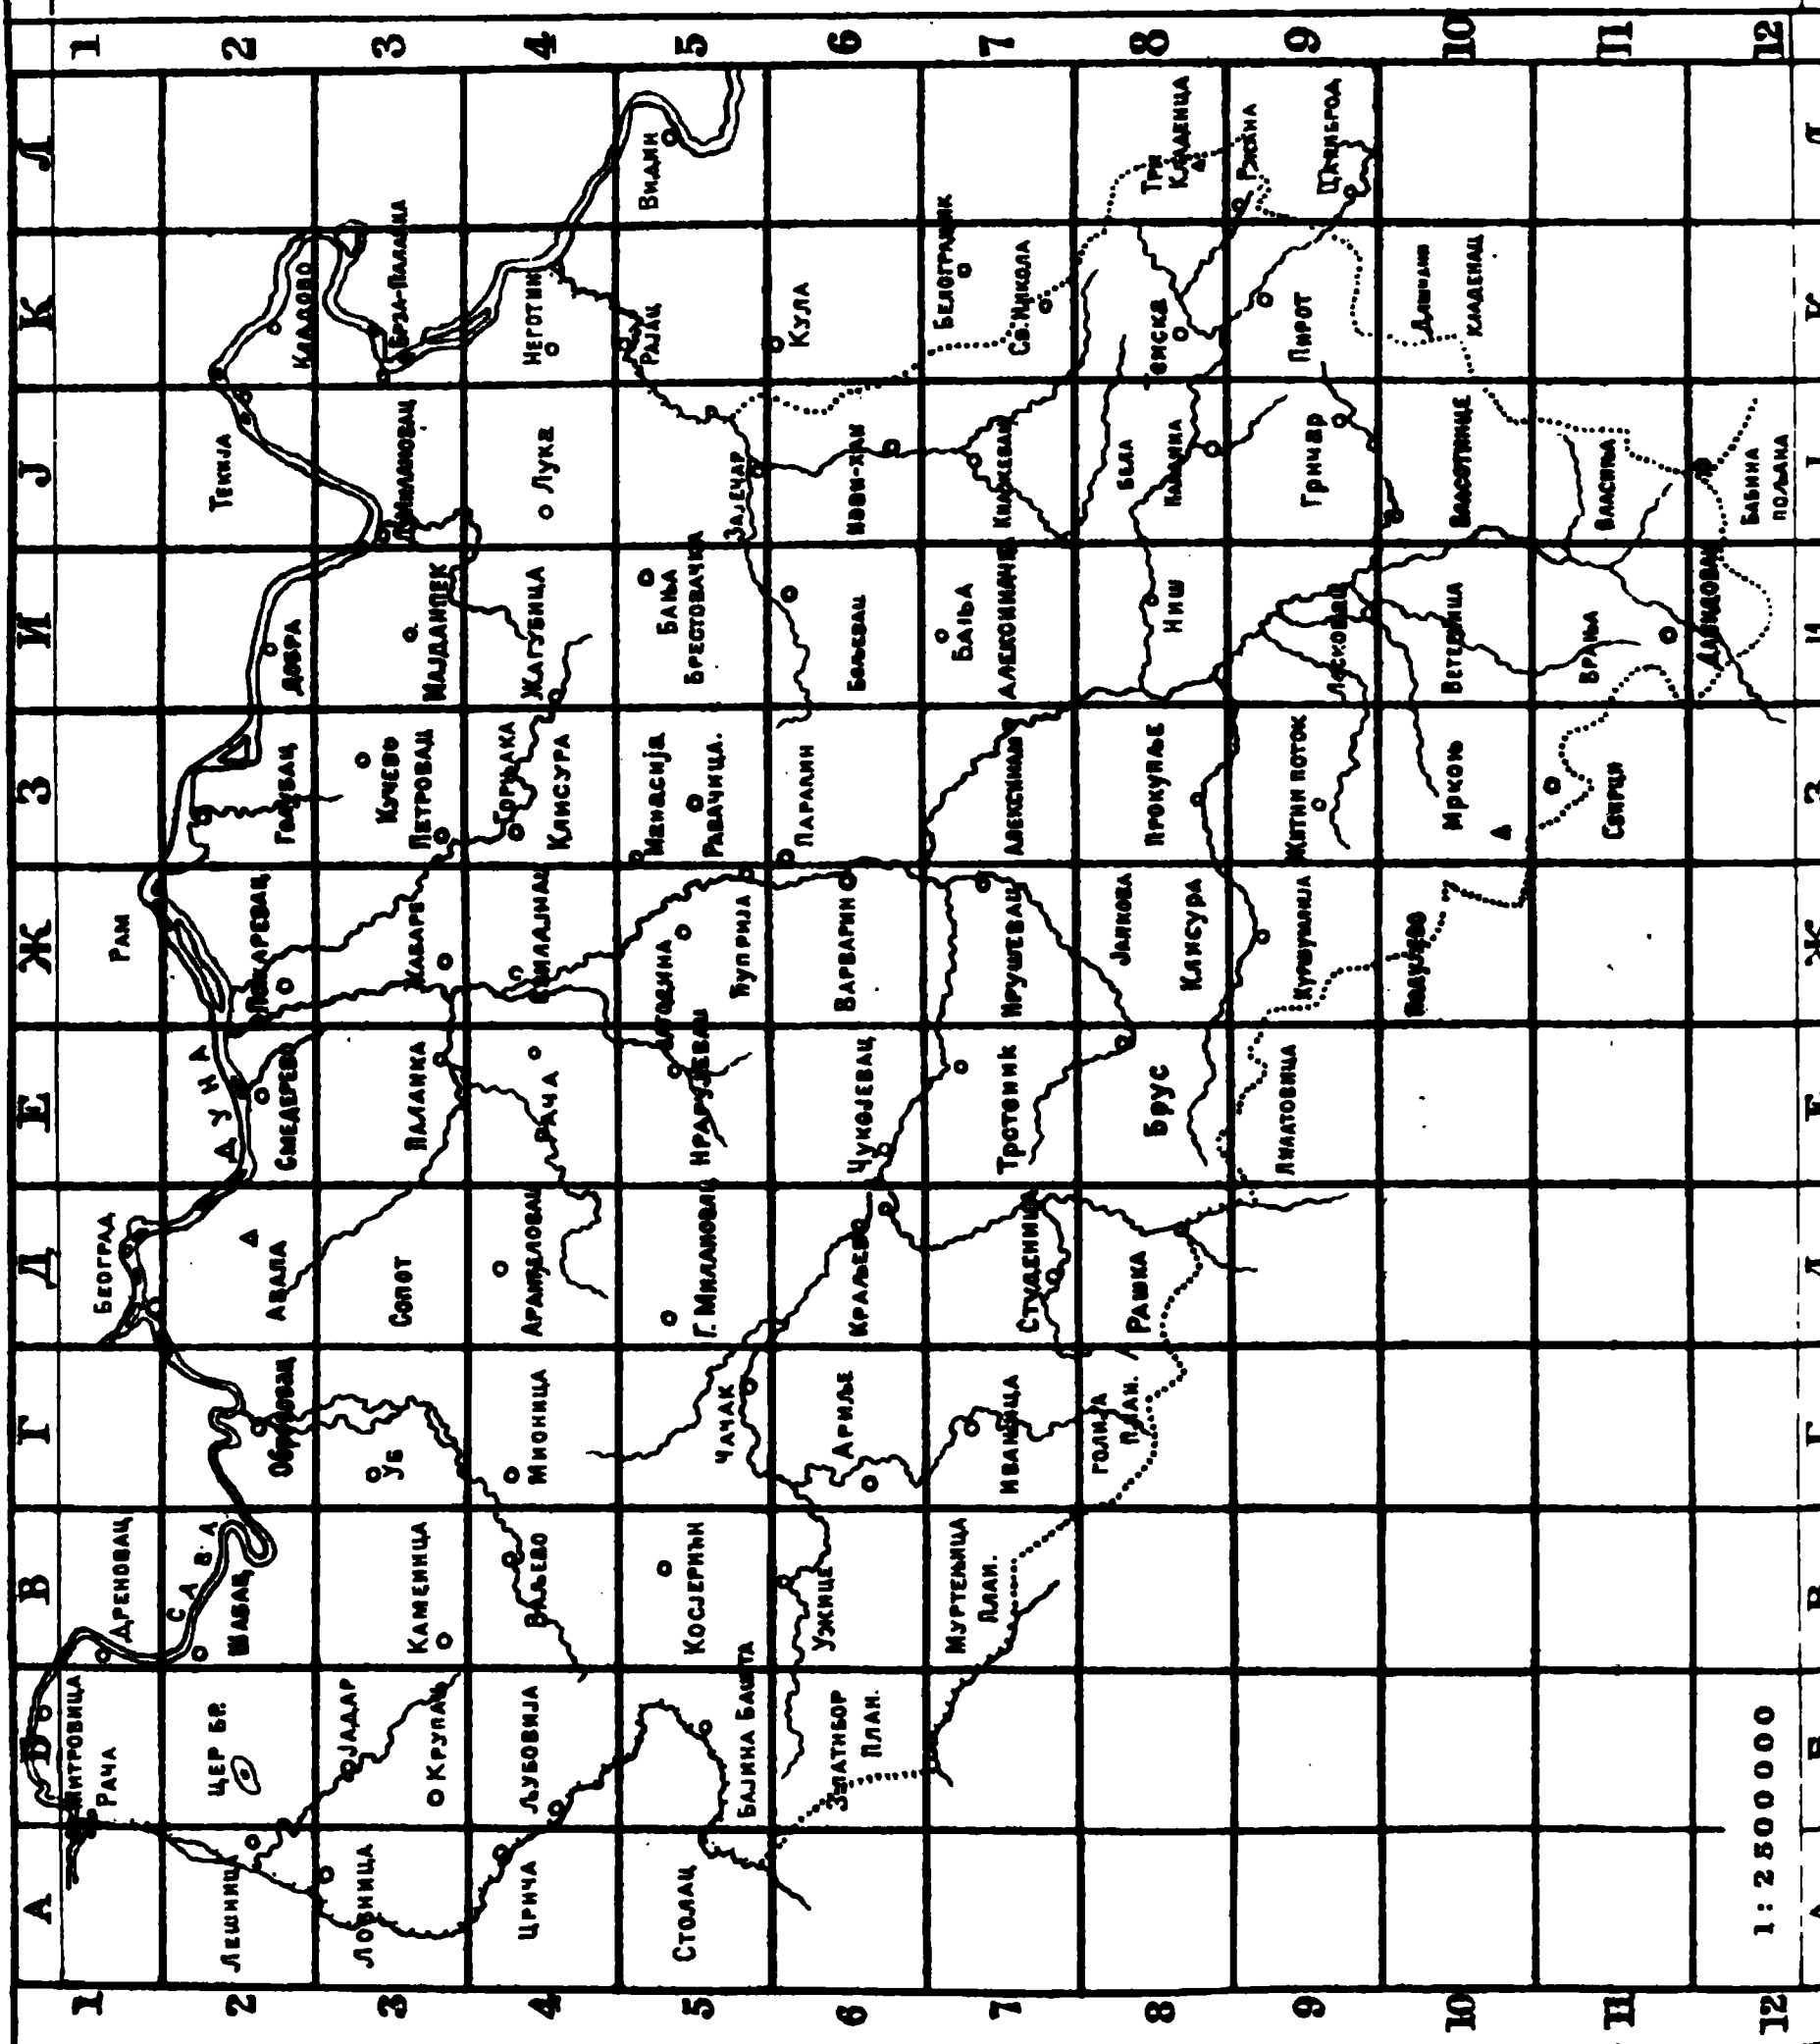 А Б В Г Д Е Ж З И Ј К Л
1
РАЧА
ДРЕНОВАЦ
БЕОГРАД
РАМ
1
2
ЛЕШНИЦА
ЦЕР БР.
ШАБАЦ
САВА
АВАЛА
СМЕДЕРЕВО
ДУНА
ПОЖАРЕВАЦ
ГОЛУБАЦ
ДОБРА
ТЕКИЈА
КЛАДОВО
2
3
ЛОЗНИЦА
ЈАДАР
КРУПАЊ
КАМЕНИЦА
УБ
СОПОТ
ПАЛАНКА
ЖАБАРЕ
КУЧЕВО
ПЕТРОВАЦ
МАЈДАНПЕК
БРЗА-ПАЛАНКА
3
4
ЦРНЧА
ЉУБОВИЈА
ВАЉЕВО
МИОНИЦА
АРАНЂЕЛОВАЦ
РАЧА
ГОРЊАКА
КЛИСУРА
ЖАГУБИЦА
Лука
НЕГОТИН
4
5
СТОЛАЦ
БАЈИНА БАШТА
КОСЈЕРИЋИ
ЧАЧАК
Г. МИЛАНОВАЦ
ЈАГОДИНА
ЋУПРИЈА
МАНАСИЈА
РАВАНИЦА.
БАЊА
БРЕСТОВАЧКА
ЗАЈЕЧАР
РАЈАЦ
ВИДИН
5
6
ЗЛАТИБОР
ПЛАН.
УЖИЦЕ
АРИЉЕ
КРАЉЕВО
ЧУКОЈЕВАЦ
ВАРВАРИН
ПАРАЋИН
БОЉЕВАЦ
НОВИ-ХАН
КУЛА
6
7
МУРТЕЊИЦА
ПЛАН.
ИВАЊИЦА
СТУДЕНИЦА
Трстеник
КРУШЕВАЦ
АЛЕКСИНАЦ
БАЊА
АЛЕКСИНАЧКА
КЊАЖЕВАЦ
БЕЛОГРАДЧИК
СВ. НИКОЛА
7
8
ГОЛИЈА
ПЛАН.
РАШКА
Брус
ЈАНКОВА
КЛИСУРА
ПРОКУПЉЕ
НИШ
БЕЛА
ПАЛАНКА
ТРИ
КЛАДЕНЦА
8
9
КУРШУМЛИЈА
ЖИТНИ ПОТОК
ЛЕСКОВАЦ
Грнчар
ПИРОТ
РЖАНА
ЦАРИБРОД
9
10
ПОДУЈЕВО
Мркоњ
ВЕТЕРНИЦА
ВЛАСОТИНЦЕ
КЛАДЕНАЦ
10
11
СВИРЦИ
ВРАЊА
ВЛАСИНА
11
12
ДАВИДОВАЦ
БАБИНА
ПОЉАНА
12
1:2500000